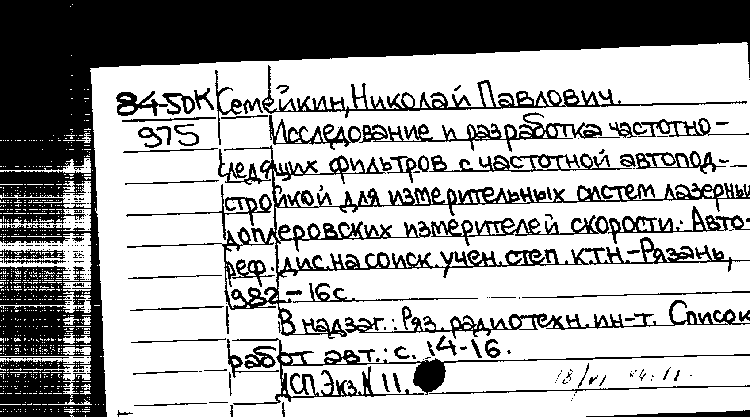 84-5DK Семейкин, Николай Павлович.
975 Исследование и разработка частотно-
следящих фильтров с частотной автопод-
стройкой для измерительных систем лазерных
доплеровских измерителей скорости.: Авто-
реф. дис. на соиск. учен. степ. к.т.н.-Рязань,
1982.- 16 с.
В надзаг.: Ряз. радиотехн. ин-т. Список
работ авт.: с. 14-16.
ДСП. Экз. N 11.